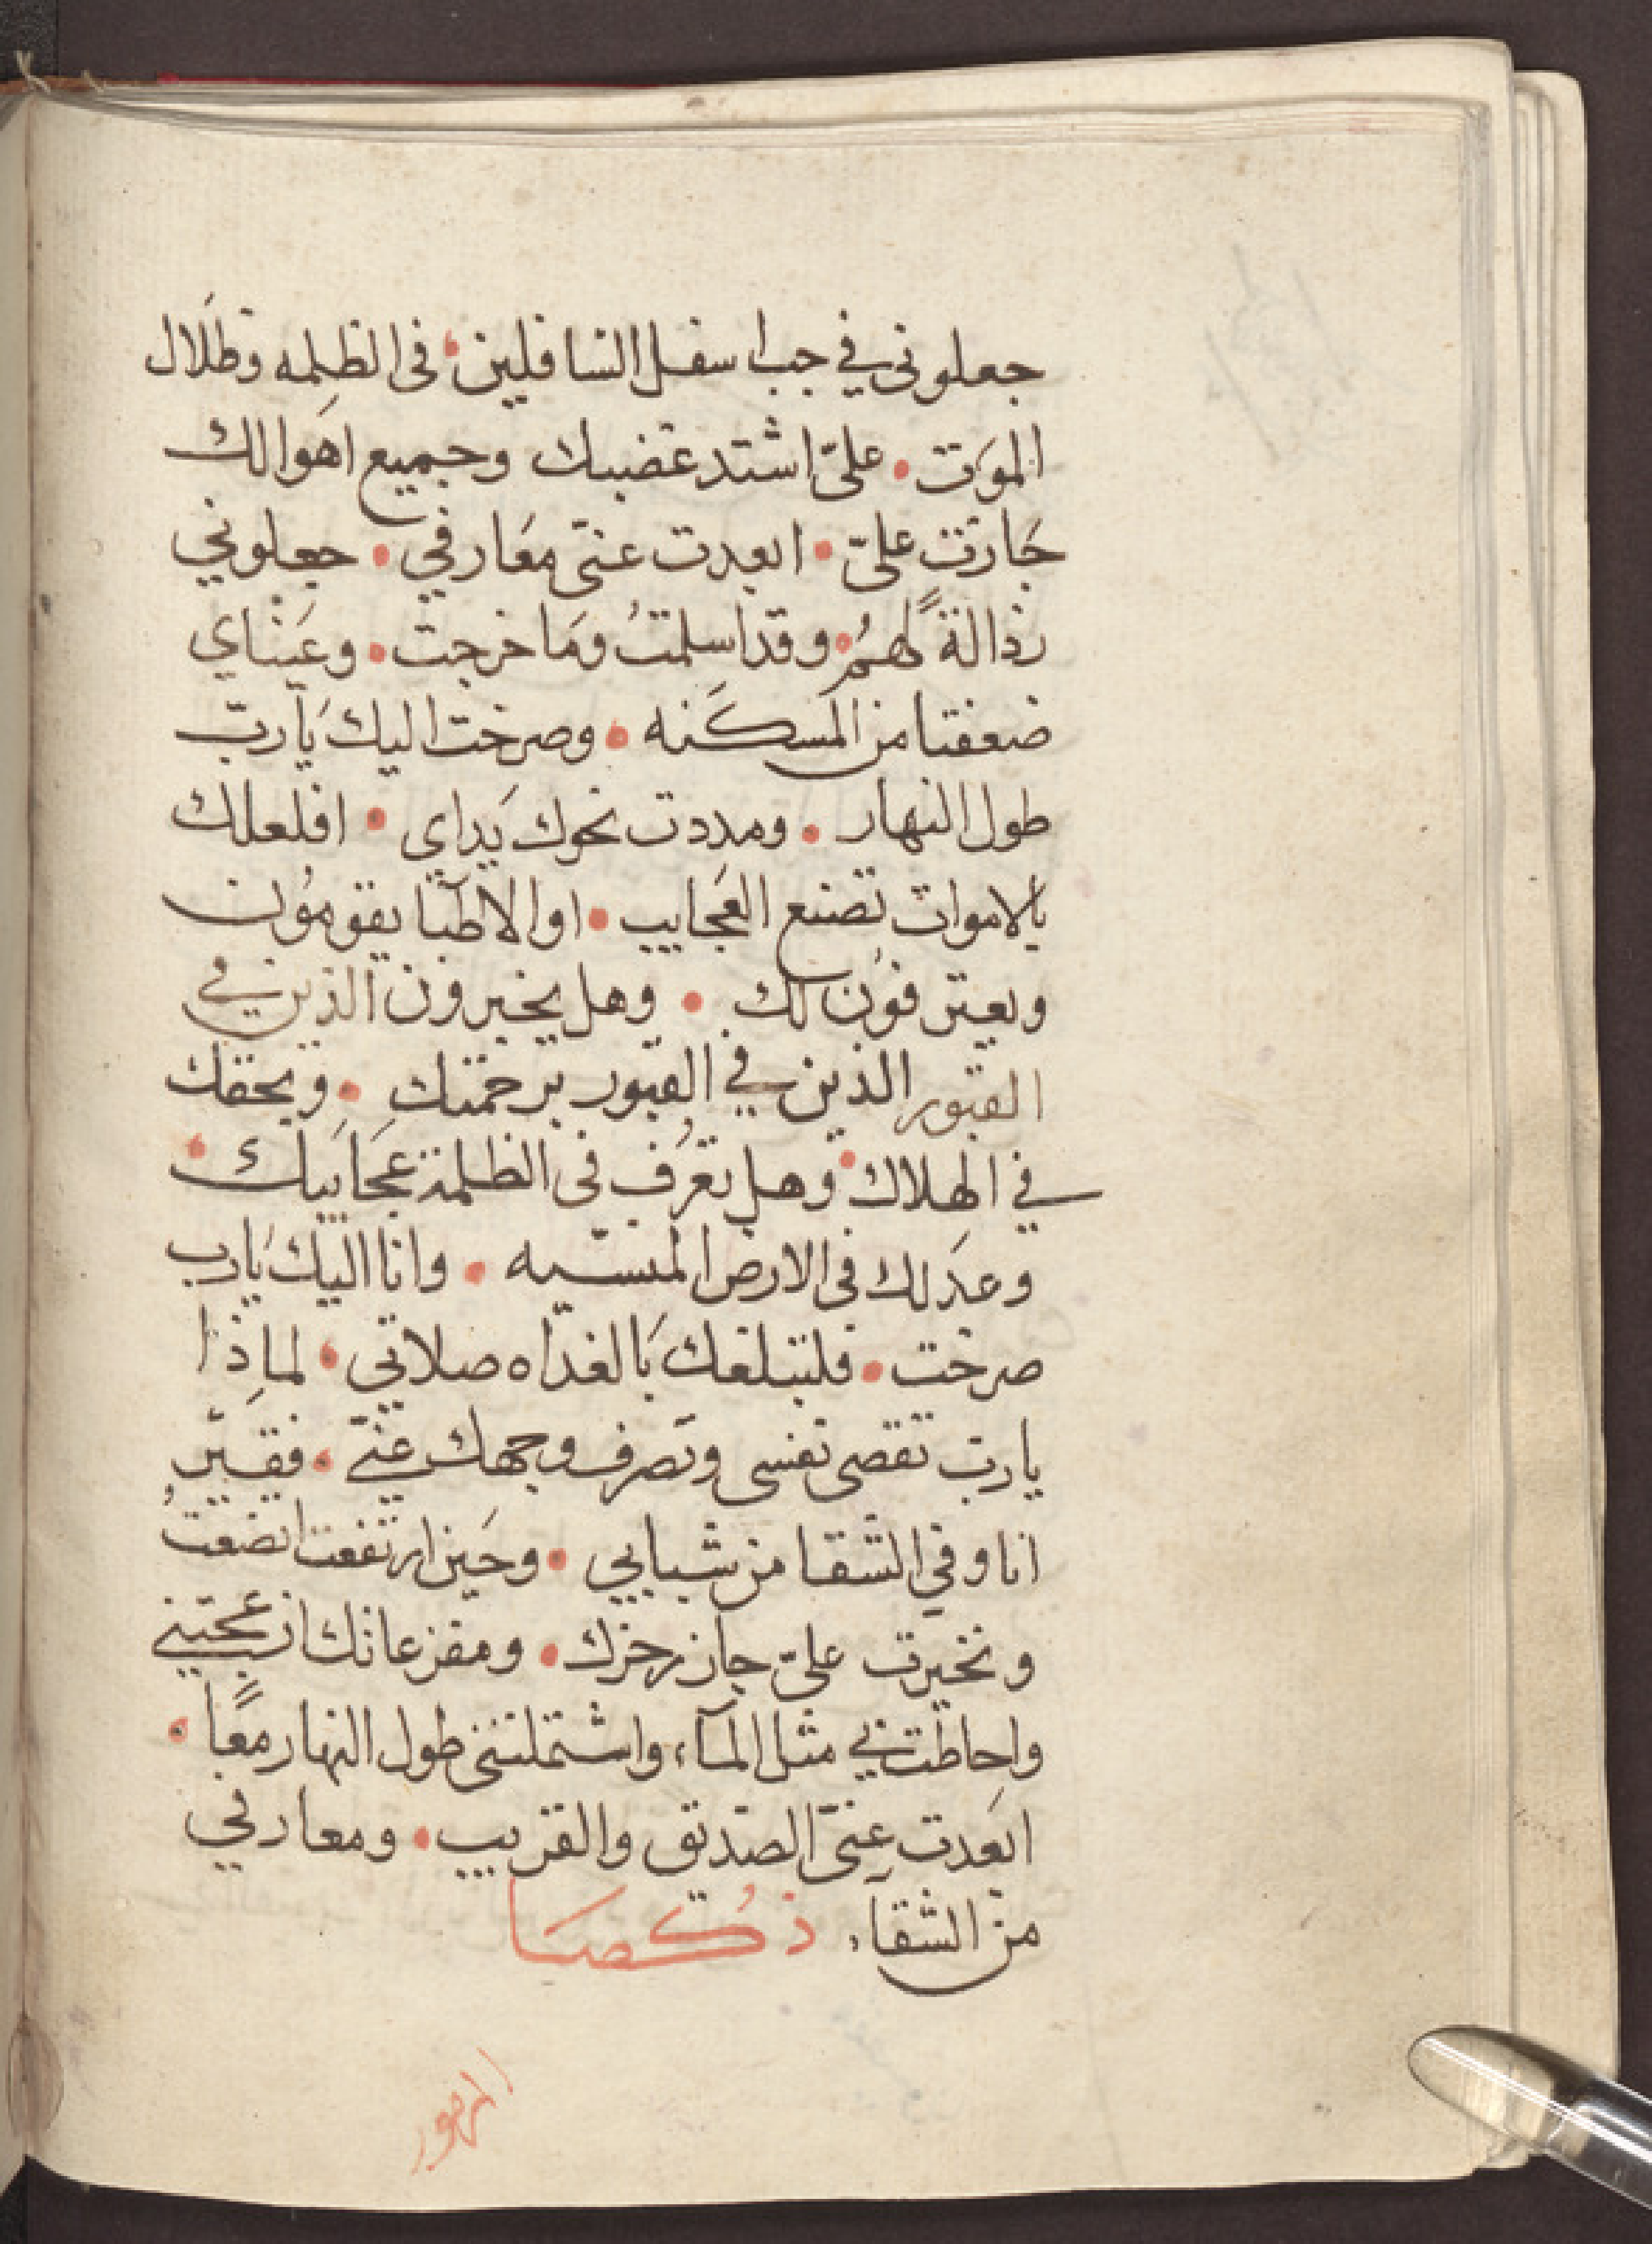 جعلوني في جب اسفل السافلين؛ فى الظلمه وظلال
الموت • علىّ اشتد غضبك وجميع اهوالك
جازت علىّ • ابعدت عنى معارفي • جعلوني
رذالةً لهمُ • وقد اسلمتُ وما خرجت • وعيناي
ضعفتا من المسكنه • وصرخت اليك يا ربّ
طول النهار • ومددت نحوك يداي • افلعلك
بالاموات تصنع العجايب • او الاطبا يقومون
ويعترفون لك • وهل يخبرون الذين في
القبور الذين في القبور برحمتك • وبحقك
في الهلاك • وهل تعرف فى الظلمة عجايبك •
وعدلك فى الارض المنسيه • وانا اليك يارب
صرخت • فلتبلغك بالغداه صلاتي • لماذا
يا ربّ تقصى نفسى وتصرف وجهك عنّي • فقيرٌ
انا وفي الشقا من شبابي • وحين ارتفعت اتضعتُ
وتحيرت علىّ جاز رجزك • ومفزعاتك ازعجتني
واحاطت بي مثل المآء، واشتملتني طول النهار معًا •
ابعدت عنّى الصديق والقريب • ومعارفي
من الشقآء، ذُكصا
المزمور